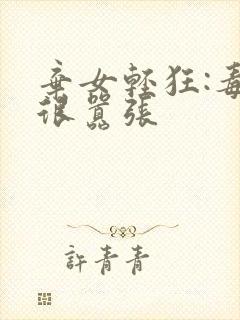 棄女輕狂:毒
很囂張
許青青